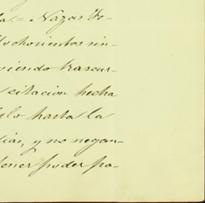 da = Nazas Fe-
lochocientos cin-
viendo trascur-
citacion hecha
elo hasta la
dias, y no negan-
tener poder pa-